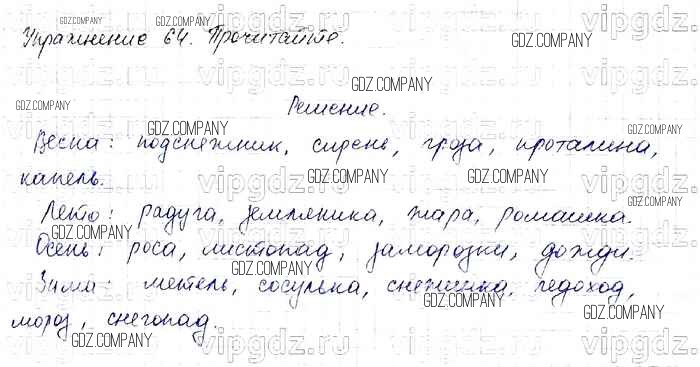 Упражнение 64. Прочитайте.
Решение.
Весна: подснежник, сирень, гроза, проталина,
капель.
Лето: радуга, земляника, жара, ромашка.
Осень: роса, листопад, заморозки, дожди.
Зима: метель, сосулька, снежинка, ледоход,
мороз, снегопад.
vipgdz.ru
GDZ.COMPANY